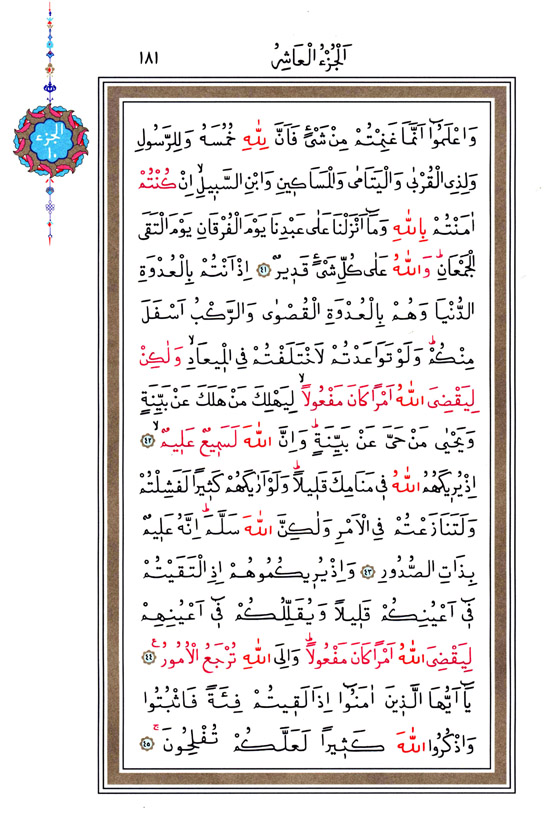 اَلْجُزْءُ الْعَاشِرُ
١٨١
الجزء
١٠
وَاعْلَمُٓوا اَنَّمَا غَنِمْتُمْ مِنْ شَىْءٍ فَاَنَّ لِلّٰهِ خُمُسَهُ وَلِلرَّسُولِ
وَلِذِى الْقُرْبٰى وَالْيَتَامٰى وَالْمَسَاكِينِ وَابْنِ السَّبِيلِۙ اِنْ كُنْتُمْ
اٰمَنْتُمْ بِاللّٰهِ وَمَٓا اَنْزَلْنَا عَلٰى عَبْدِنَا يَوْمَ الْفُرْقَانِ يَوْمَ الْتَقَى
الْجَمْعَانِۜ وَاللّٰهُ عَلٰى كُلِّ شَىْءٍ قَدِيرٌ ﴿٤١﴾ اِذْ اَنْتُمْ بِالْعُدْوَةِ
الدُّنْيَا وَهُمْ بِالْعُدْوَةِ الْقُصْوٰى وَالرَّكْبُ اَسْفَلَ
مِنْكُمْۜ وَلَوْ تَوَاعَدْتُمْ لَاخْتَلَفْتُمْ فِى الْمِيعَادِۙ وَلٰكِنْ
لِيَقْضِىَ اللّٰهُ اَمْرًا كَانَ مَفْعُولًاۙ لِيَهْلِكَ مَنْ هَلَكَ عَنْ بَيِّنَةٍ
وَيَحْيٰى مَنْ حَىَّ عَنْ بَيِّنَةٍۜ وَاِنَّ اللّٰهَ لَسَمِيعٌ عَلِيمٌۙ ﴿٤٢﴾
اِذْ يُرِيكَهُمُ اللّٰهُ فِى مَنَامِكَ قَلِيلًاۜ وَلَوْ اَرٰيكَهُمْ كَثِيرًا لَفَشِلْتُمْ
وَلَتَنَازَعْتُمْ فِى الْاَمْرِ وَلٰكِنَّ اللّٰهَ سَلَّمَۜ اِنَّهُ عَلِيمٌ
بِذَاتِ الصُّدُورِ ﴿٤٣﴾ وَاِذْ يُرِيكُمُوهُمْ اِذِ الْتَقَيْتُمْ
فِٓى اَعْيُنِكُمْ قَلِيلًا وَيُقَلِّلُكُمْ فِٓى اَعْيُنِهِمْ
لِيَقْضِىَ اللّٰهُ اَمْرًا كَانَ مَفْعُولًاۜ وَاِلَى اللّٰهِ تُرْجَعُ الْاُمُورُ ع ﴿٤٤﴾
يَٓا اَيُّهَا الَّذِينَ اٰمَنُٓوا اِذَا لَقِيتُمْ فِئَةً فَاثْبُتُوا
وَاذْكُرُوا اللّٰهَ كَثِيرًا لَعَلَّكُمْ تُفْلِحُونَۚ ﴿٤٥﴾